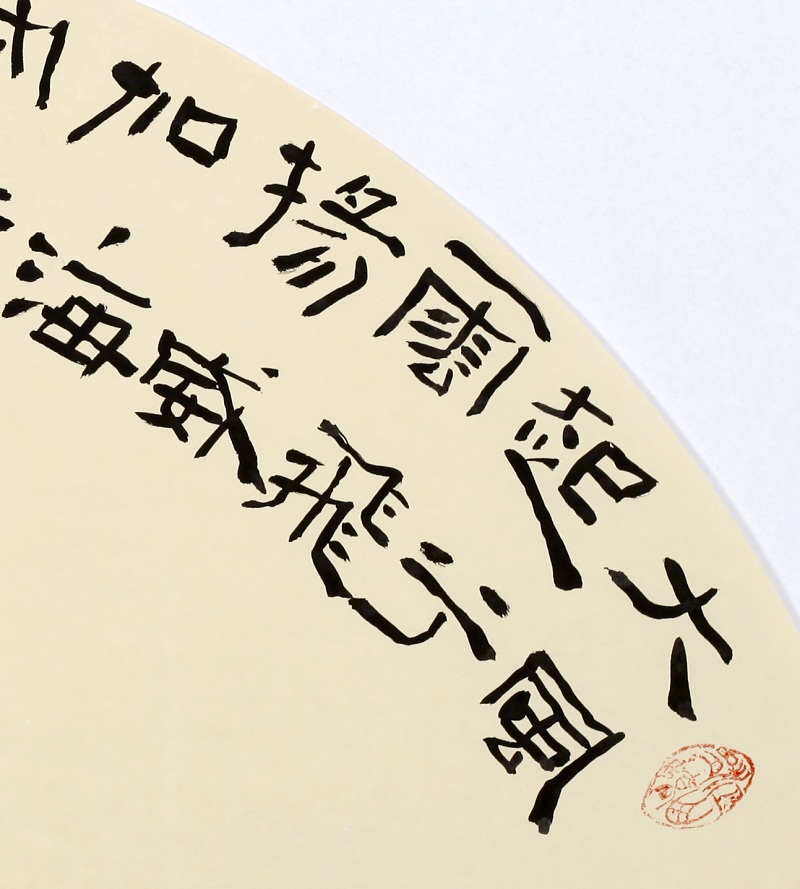 大風
起兮
雲飛
揚威
加海